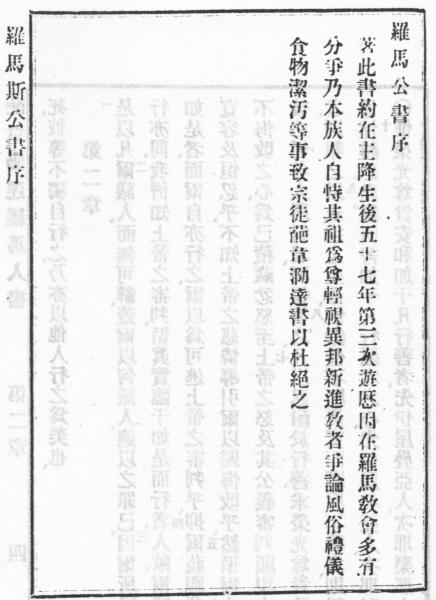 羅馬公書序
著此書約在主降生後五十七年第三次遊厯因在羅馬敎會多有
分爭乃本族人自恃其祖爲尊輕視異邦新進敎者爭論風俗禮儀
食物潔汚等事致宗徒葩韋泐達書以杜絕之
羅馬斯公書序